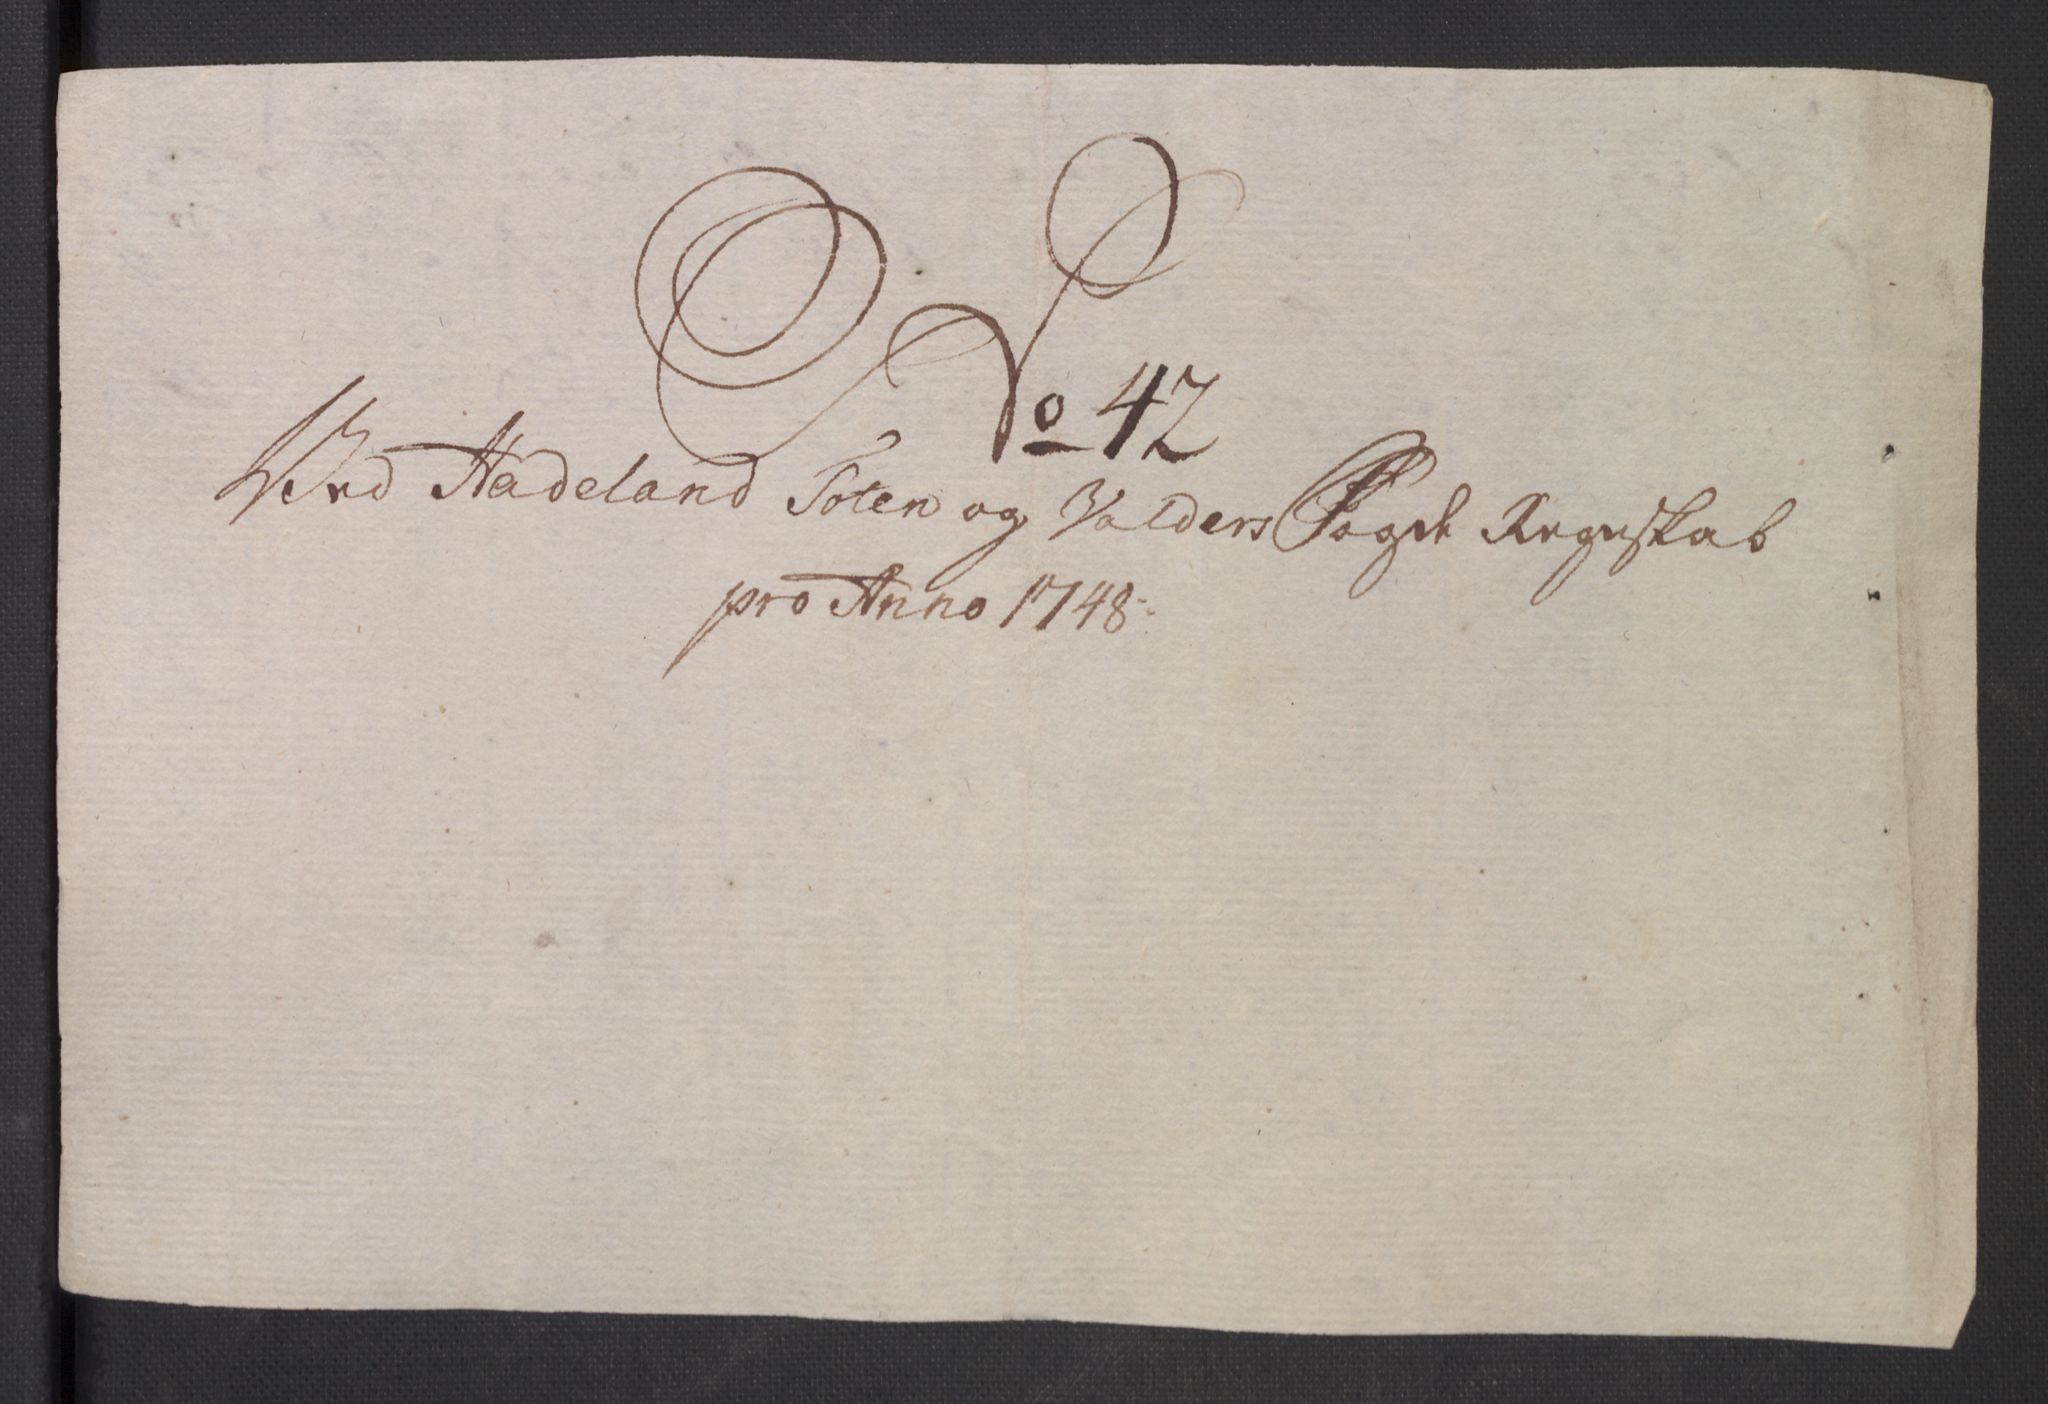 No 42
Ved Hadeland Toten og Valders Fogde Regnskab
pro Anno 1748